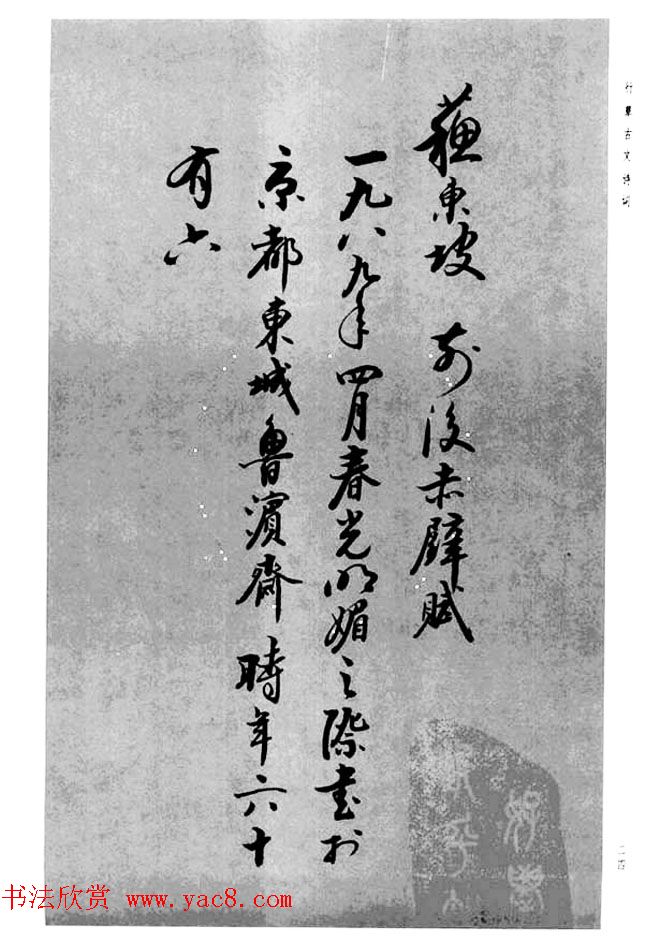 行草古文诗词
蘓東坡 前後赤壁賦
一九八九年四月春光明媚之際書於
京都東城魯濱齋時年六十
有六
书法欣赏 www.yac8.com